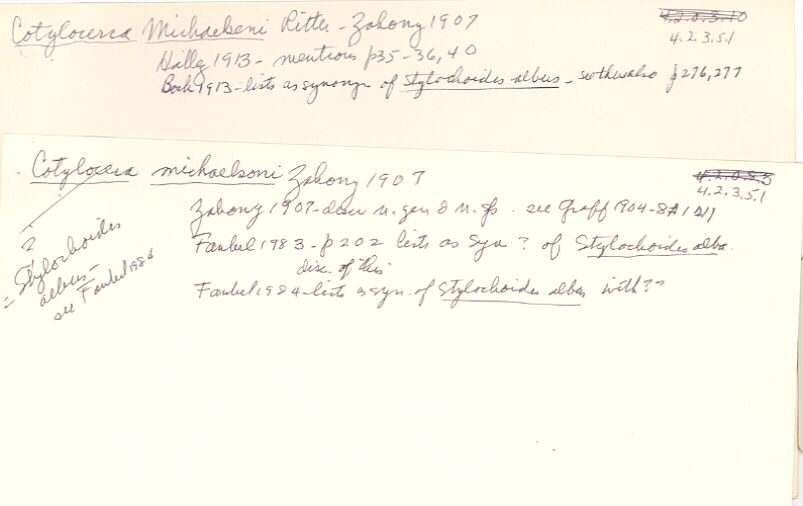 Cotylocerca Michaelseni Ritter-Zahony 1907
4.2.0.3.10
4.2.3.5.1
Hallez 1913 - mentions p35-36, 40
Bock 1913 - lists as synonym of Stylochoides albus - see there also p276,277
Cotylocera michaelsoni Zahony 1907
4.2.3.5.1
Zahony 1907 - descr n. gen & n. sp. see Graff 1904-8
Faubel 1983 - p202 lists as syn ? of Stylochoides alba.
disc. of this
Faubel 1984 - lists as syn. of Stylochoides albus with ??
?
= Stylochoides
albus -
see Faubel 1984